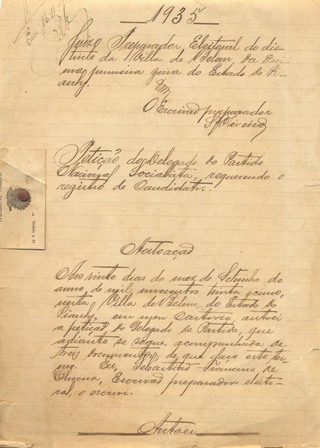 1935
Juizo Preparador Eleitoral do dis-
tricto da Villa de Belem da
primeira zona do Estado do Pi-
auhy.
O Escrivão preparador
Petição do Delegado do Partido
Nacional Socialista, requerendo o
registro de Candidatos.
Autoação
Aos vinte dias do mez de Setembro do
anno de mil novecentos trinta e cinco,
nesta Villa de Belem, do Estado do
Piauhy, em meu cartorio autoei
a petição do Delegado do Partido, que
adiante se segue, acompanhada de
tres documentos; de que faço este ter-
mo. Eu, Sebastião Francino de
Escrivão preparador eleito-
ral, o escrevi.
Autoei